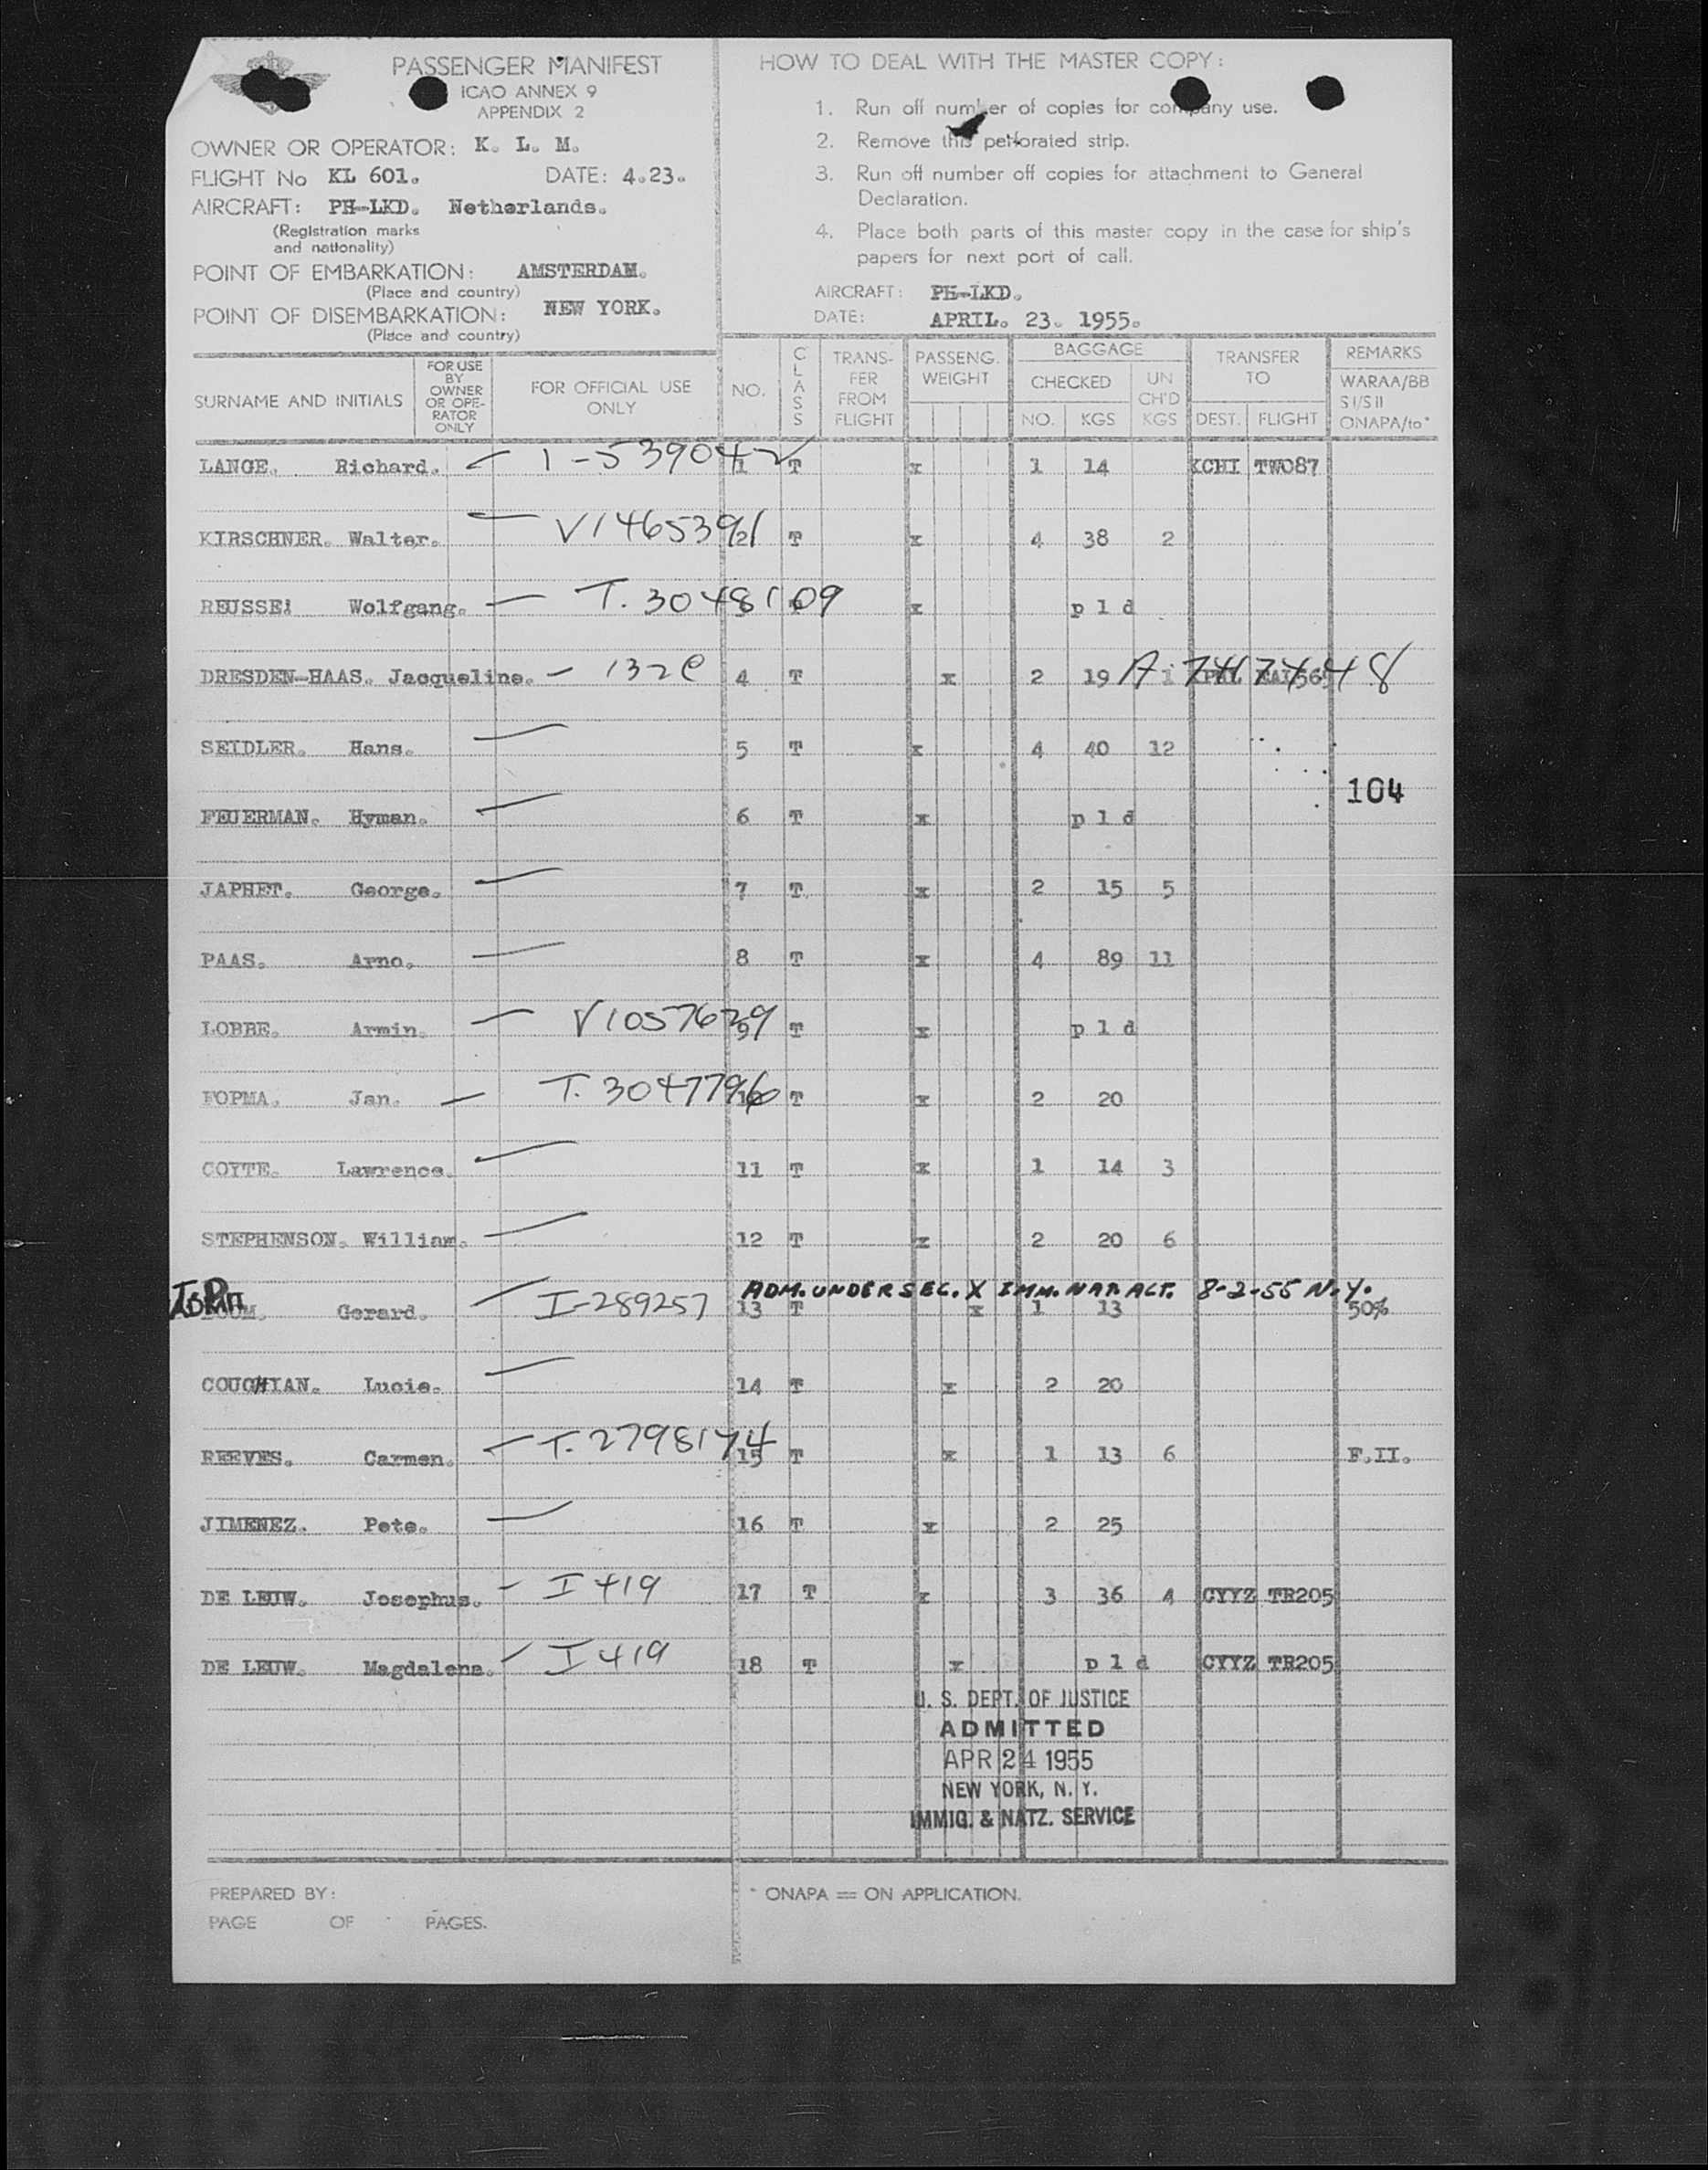 PASSENGER MANIFEST
ICAO ANNEX 9
APPENDIX 2
OWNER OR OPERATOR: K. L. M.
FLIGHT No KL 601. DATE: 4.23.
AIRCRAFT: PH-LKD. Netherlands.
(Registration marks
and nationality)
POINT OF EMBARKATION: AMSTERDAM.
(Place and country)
POINT OF DISEMBARKATION: NEW YORK.
(Place and country)
HOW TO DEAL WITH THE MASTER COPY:
1. Run off number of copies for company use.
2. Remove this perforated strip.
3. Run off number off copies for attachment to General
Declaration.
4. Place both parts of this master copy in the case for ship's
papers for next port of call.
AIRCRAFT: PH-LKD.
DATE: APRIL. 23. 1955.
SURNAME AND INITIALS
FOR USE
BY
OWNER
OR OPE-
RATOR
ONLY
FOR OFFICIAL USE
ONLY
NO.
CLASS
TRANS-
FER
FROM
FLIGHT
PASSENG.
WEIGHT
BAGGAGE
CHECKED
NO. KGS
UN
CH'D
KGS
TRANSFER
TO
DEST. FLIGHT
REMARKS
WARAA/BB
SI/SII
ONAPA/to*
LANGE. Richard. 1-539042 1 T x 1 14 KCHI TW087
KIRSCHNER. Walter. V1465391 2 T x 4 38 2
REUSSE. Wolfgang. T. 3048109 x p l d
DRESDEN-HAAS. Jacqueline. 132e 4 T x 2 19 1 A 7417448
SEIDLER. Hans. 5 T x 4 40 12
104
FEUERMAN. Hyman. 6 T x p l d
JAPHET. George. 7 T x 2 15 5
PAAS. Arno. 8 T x 4 89 11
LOBBE. Armin. V1057629 9 T x p l d
FOPMA. Jan. T. 3047796 10 T x 2 20
COYTE. Lawrence. 11 T x 1 14 3
STEPHENSON. William. 12 T x 2 20 6
ADM. UNDER SEC. X IMM. NAT. ACT. 8-2-55 N.Y.
Gerard. I-289257 13 T x 1 13 50%
COUGHIAN. Lucie. 14 T x 2 20
REEVES. Carmen. T. 2798174 15 T x 1 13 6 F.II.
JIMENEZ. Pete. 16 T x 2 25
DE LEUW. Josephus. I 419 17 T x 3 36 4 CYYZ TR205
DE LEUW. Magdalena. I 419 18 T x p l d CYYZ TR205
U. S. DEPT. OF JUSTICE
ADMITTED
APR 24 1955
NEW YORK, N. Y.
IMMIG. & NATZ. SERVICE
PREPARED BY:
PAGE OF PAGES.
* ONAPA = ON APPLICATION.